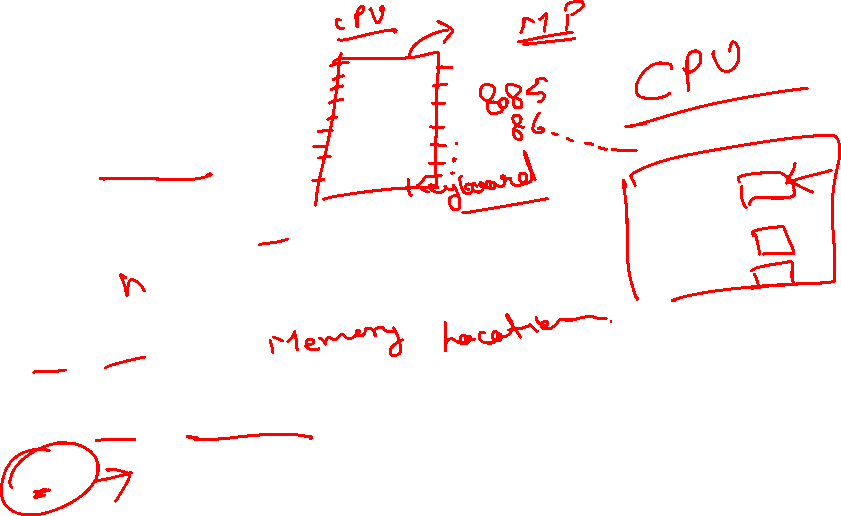 CPU
MP
8085
86
CPU
Keyboard
n
Memory Location